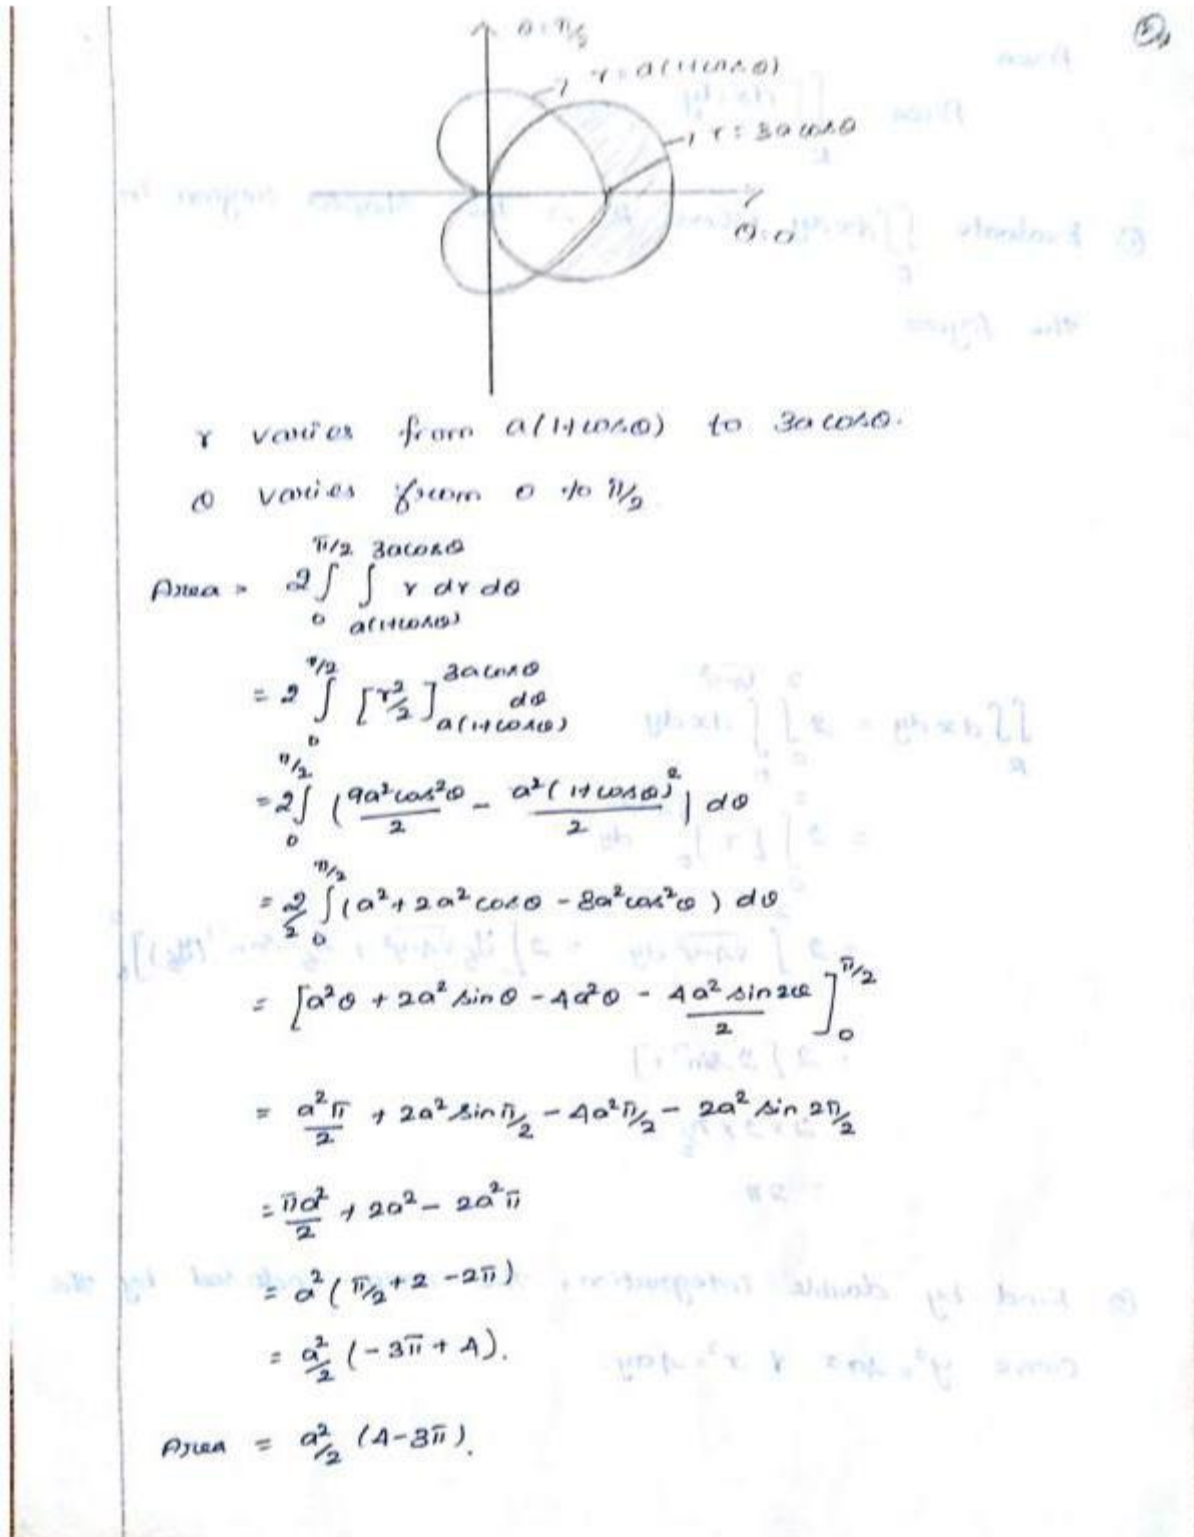 θ = π/2
r = a(1+cosθ)
r = 3a cosθ
θ = 0
r varies from a(1+cosθ) to 3a cosθ.
θ varies from 0 to π/2
Area = 2 ∫_0^{π/2} ∫_{a(1+cosθ)}^{3a cosθ} r dr dθ
= 2 ∫_0^{π/2} [r²/2]_{a(1+cosθ)}^{3a cosθ} dθ
= 2 ∫_0^{π/2} (9a²cos²θ/2 - a²(1+cosθ)²/2) dθ
= 2/2 ∫_0^{π/2} (a² + 2a² cosθ - 8a²cos²θ) dθ
= [a²θ + 2a² sinθ - 4a²θ - 4a² sin2θ/2]_0^{π/2}
= a²π/2 + 2a² sin π/2 - 4a² π/2 - 2a² sin 2π/2
= πa²/2 + 2a² - 2a²π
= a² (π/2 + 2 - 2π)
= a²/2 (-3π + 4).
Area = a²/2 (4-3π).